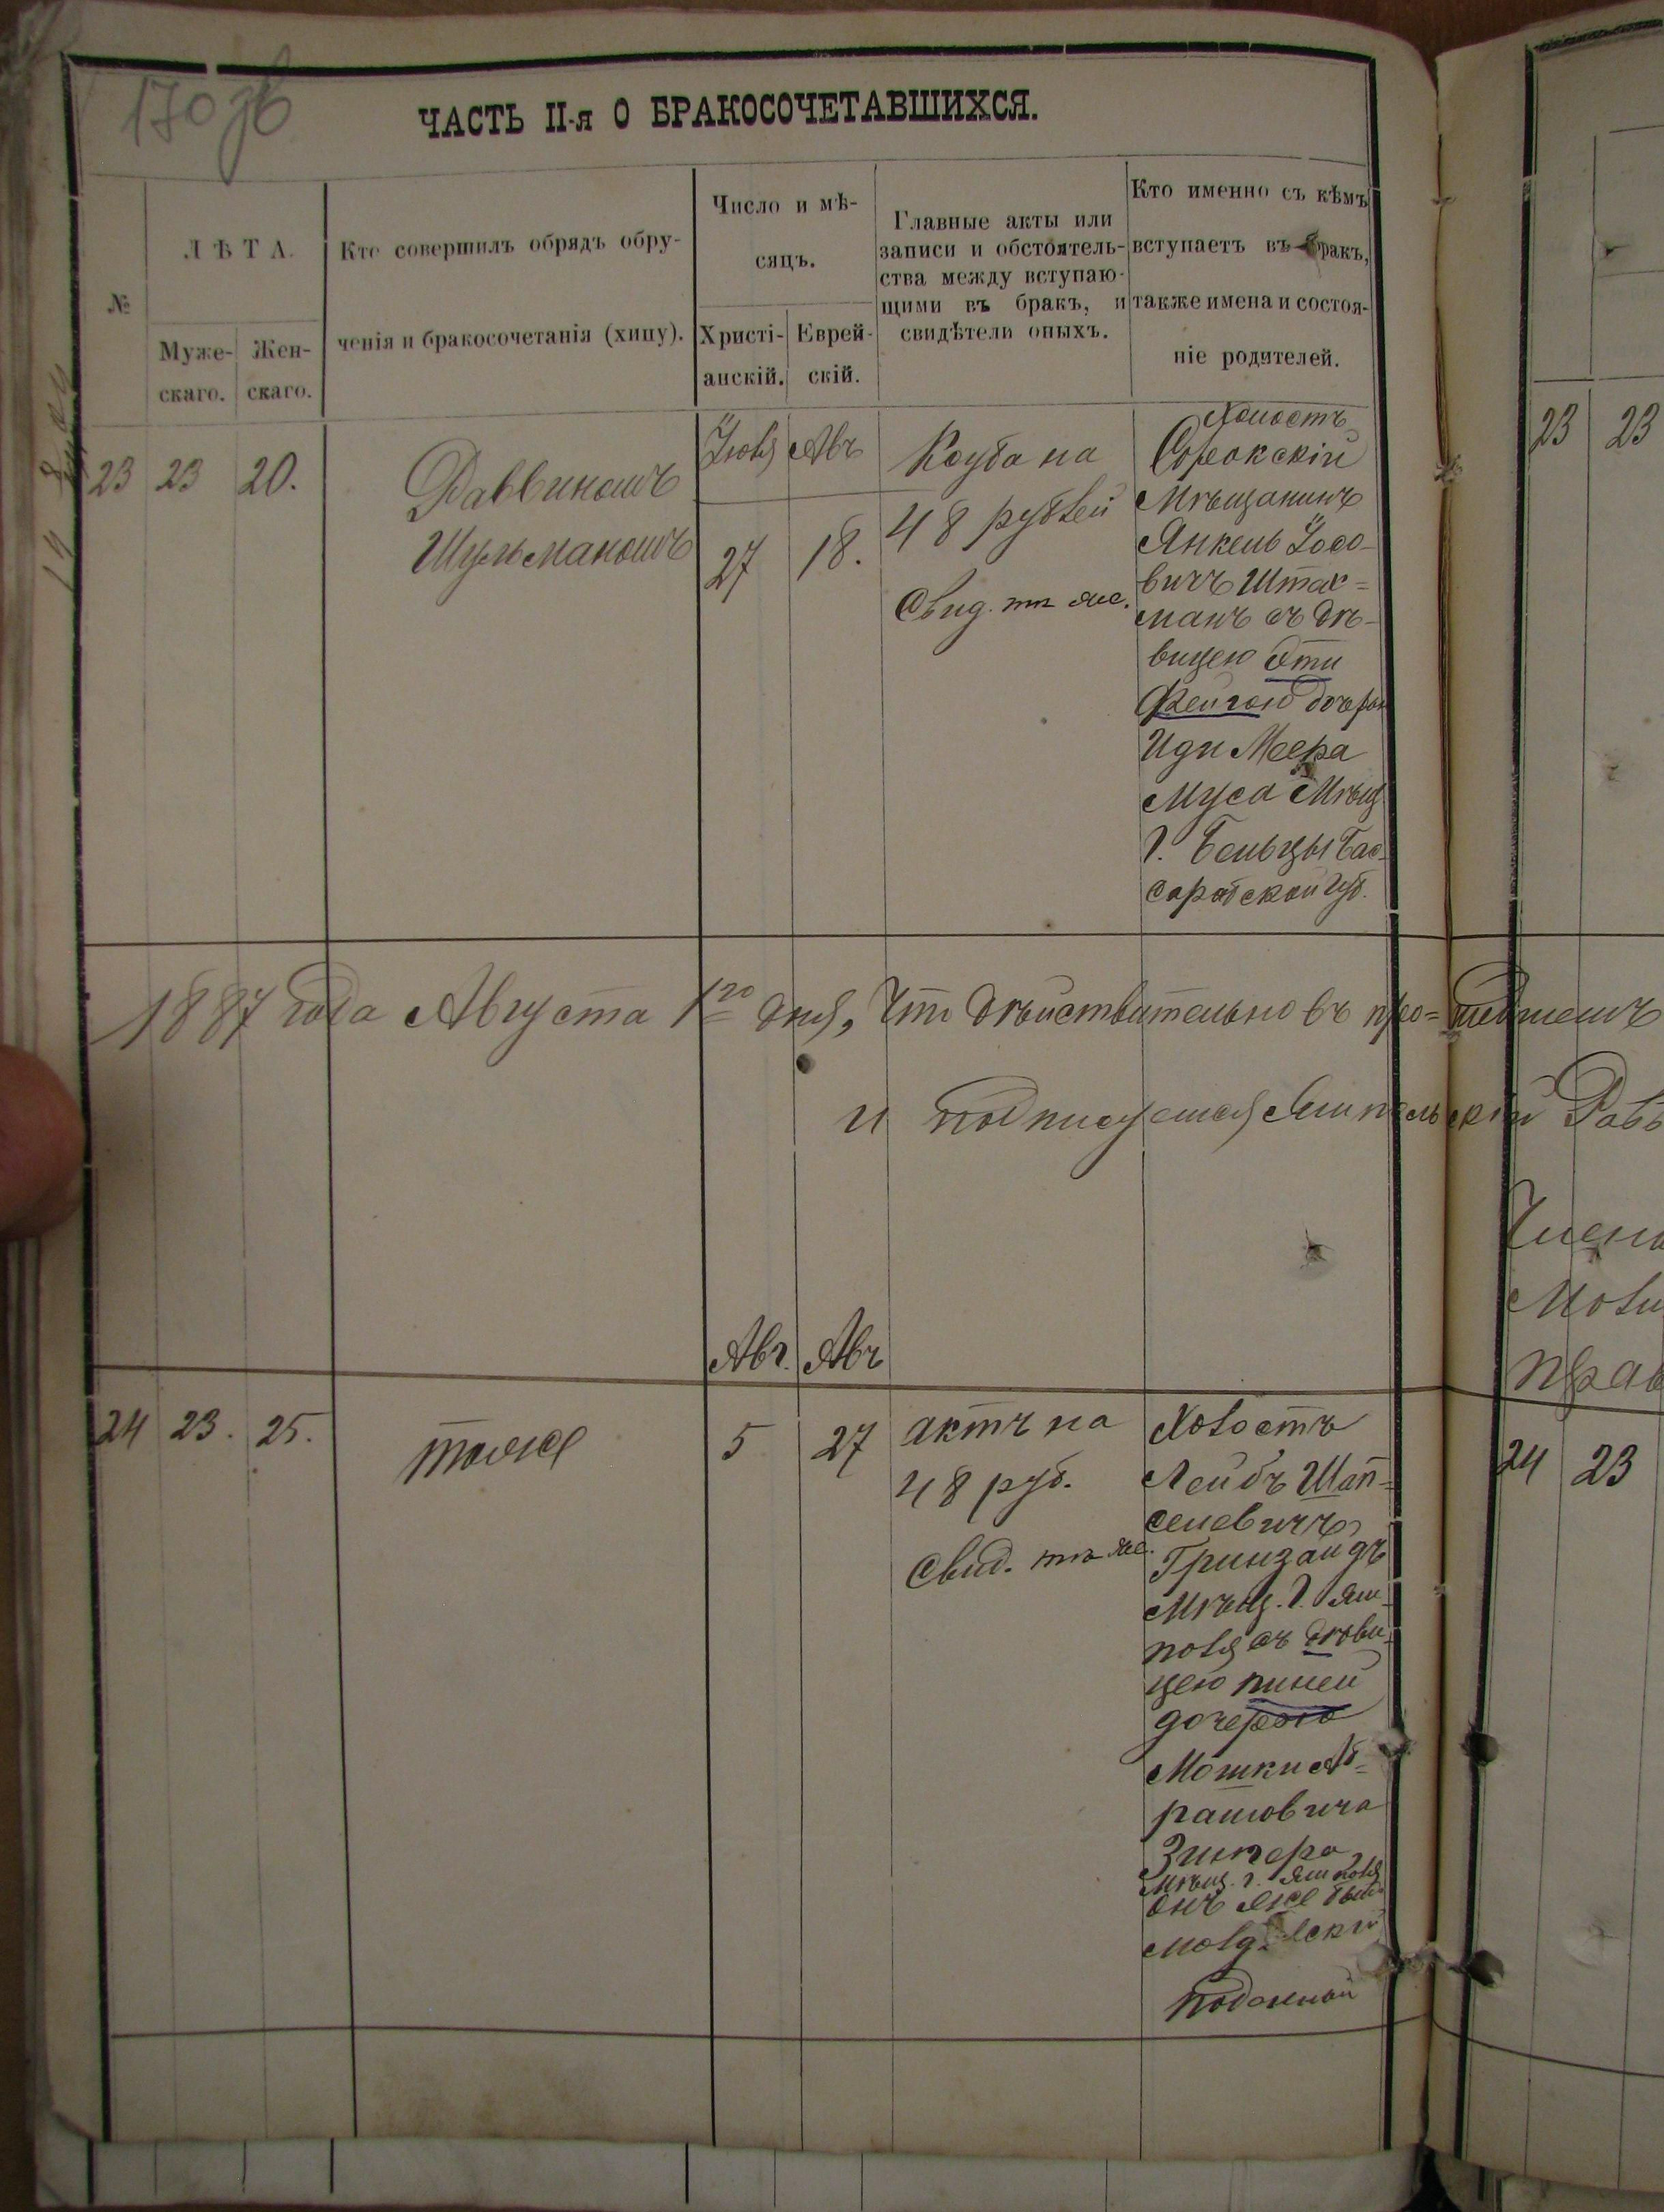 170 зв
ЧАСТЬ II-я О БРАКОСОЧЕТАВШИХСЯ.
№
ЛѢТА.
Муже-
скаго.
Жен-
скаго.
Кто совершилъ обрядъ обру-
ченія и бракосочетанія (хипу).
Число и мѣ-
сяцъ.
Христі-
анскій.
Еврей-
скій.
Главные акты или
записи и обстоятель-
ства между вступаю-
щими въ бракъ, и
свидѣтели оныхъ.
Кто именно съ кѣмъ
вступаетъ въ бракъ,
также имена и состоя-
ніе родителей.
23
23
20.
Раввиномъ
Шульманомъ
Іюля
27
Авъ
18.
Ктуба на
48 рублей
Свид. тѣ же.
Холостъ
Сорокскій
Мѣщанинъ
Янкель Іосо-
вичъ Штак-
манъ съ дѣ-
вицею Эти
Фейгою дочерью
Иди Меера
Муса Мѣщ.
г. Бельцы Бес-
сарабской губ.
1887 года Августа 1го дня, Что дѣйствительно въ про-шедшемъ
и подписуемся Ямпольскій Равв
Члена
24
23.
25.
тоже
Авг.
5
Авъ
27
актъ на
48 руб.
Свид. тѣ же.
Холостъ
Лейбъ Шап-
селевичъ
Гринзайдъ
Мѣщ. г. Ям-
поля съ дѣви-
цею пиней
дочерью
Мошки Аб-
рамовича
Зингера
Мѣщ. г. Ямполя
онъ же
подданный
23
23
24
23